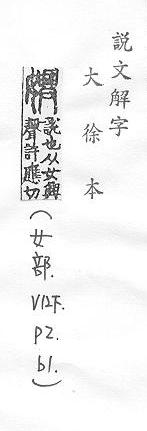 說文解字
大徐本
嬹
說也从女興
聲許應切
(女部. V12下. P2. b1.)